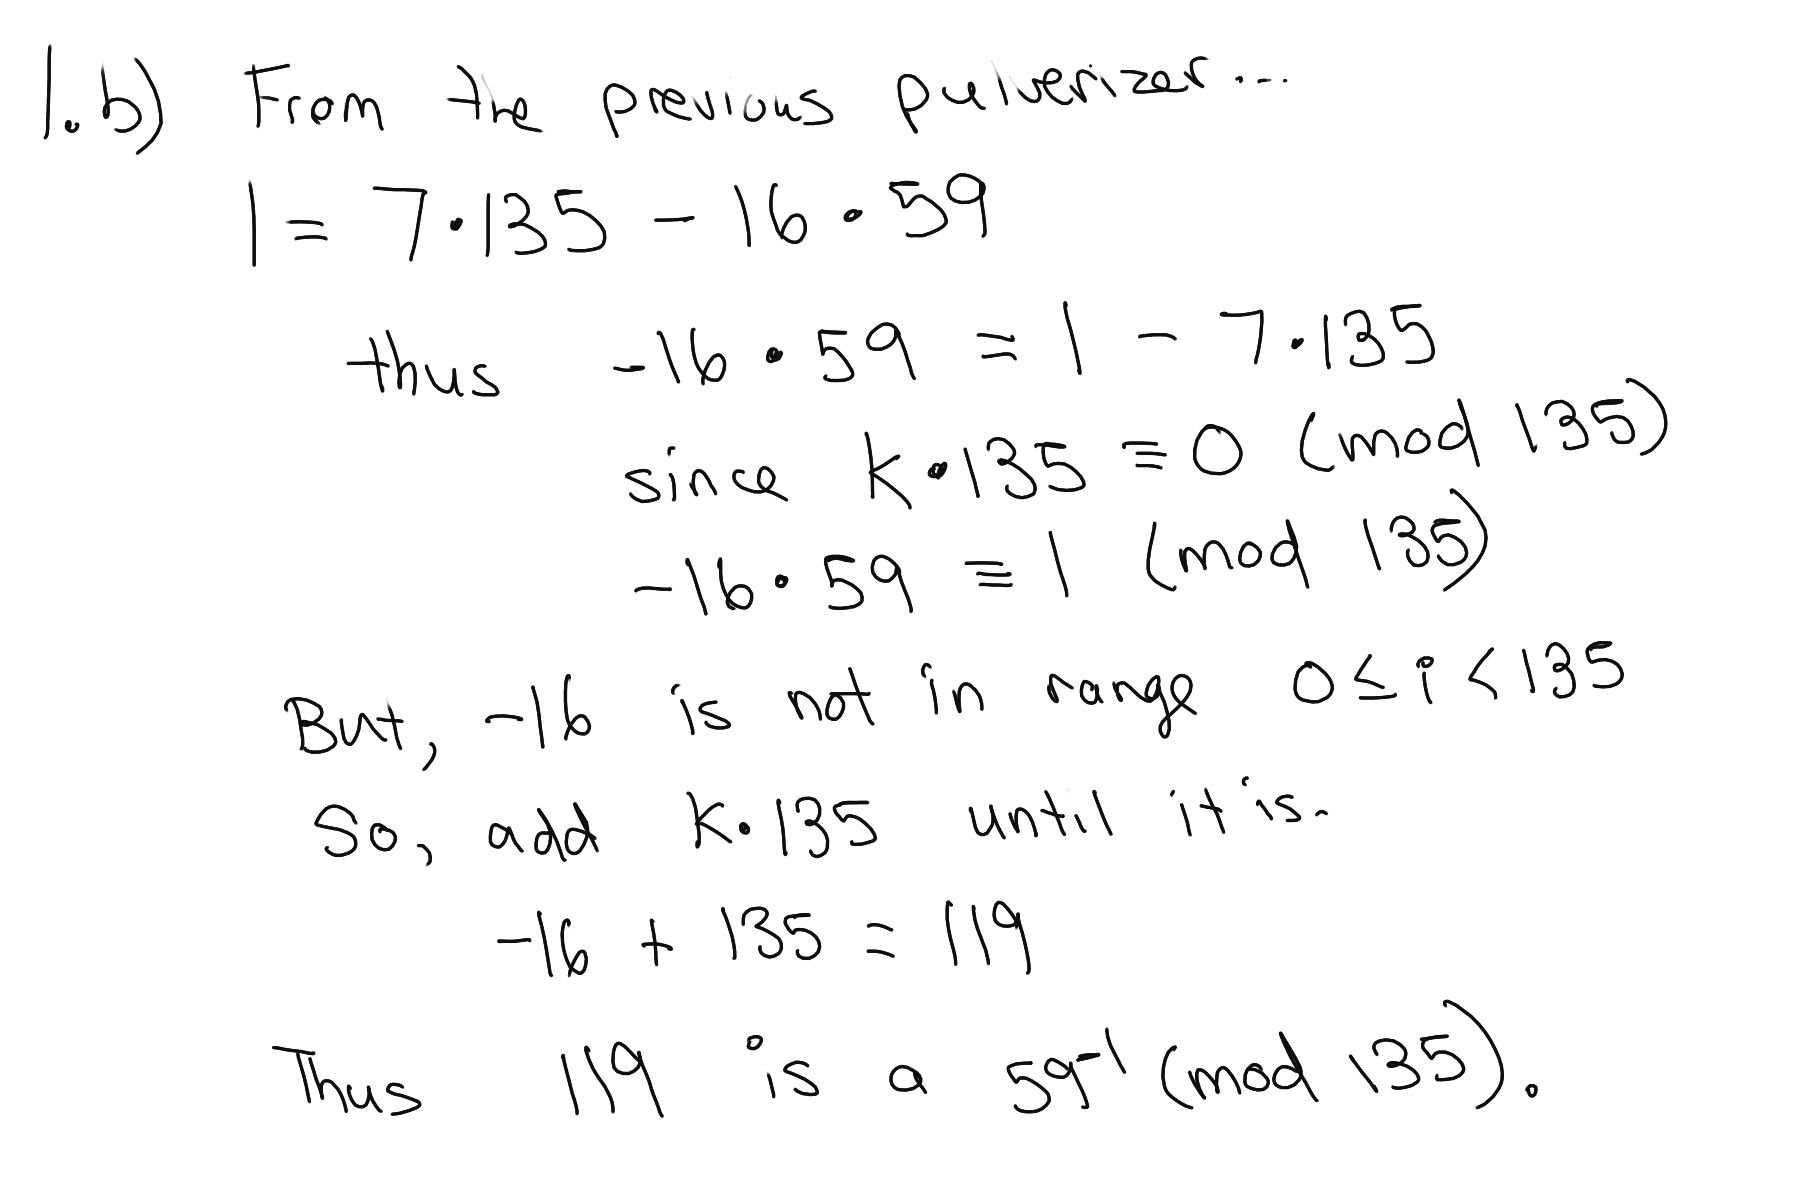 1.b) From the previous pulverizer...
1 = 7·135 - 16·59
thus -16·59 = 1 - 7·135
since k·135 ≡ 0 (mod 135)
-16·59 ≡ 1 (mod 135)
But, -16 is not in range 0 ≤ i < 135
So, add k·135 until it is.
-16 + 135 = 119
Thus 119 is a 59⁻¹ (mod 135).